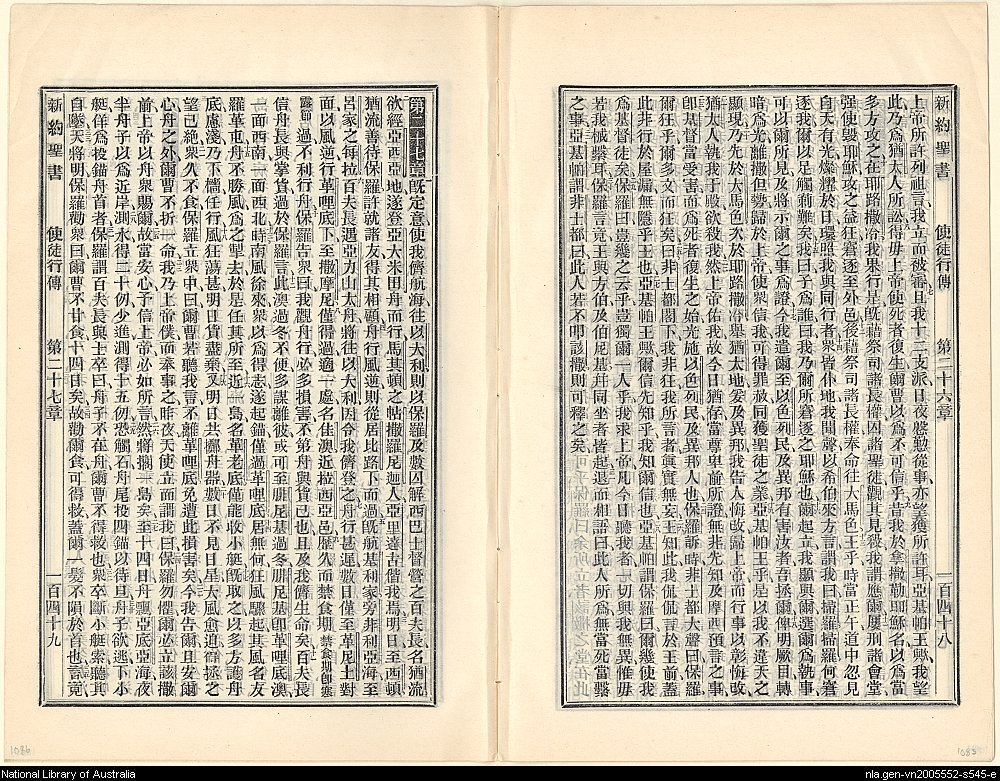 新約聖書 使徒行傳 第二十六章 一百四十八
上帝所許列祖言我立而被審且我十二支派日夜慇懃從事亦望獲所許耳亞基帕王歟我望
此乃爲猶太人所訟得毋上帝使死者復生爾曹以爲不可信乎昔我於拿撒勒耶穌名以爲當
多方攻之在耶路撒冷我果行是旣藉祭司諸長權囚諸聖徒觀其見殺我謂應爾屢刑諸會堂
强使毀耶穌攻之益狂窘逐至外邑後藉祭司諸長權奉命往大馬色王乎時當正午道中忽見
自天有光燦耀於日環照我與同行者衆皆仆地我聞聲以希伯來方言謂我曰掃羅掃羅何窘
逐我爾以足觸刺難矣我曰子爲誰曰我乃爾所窘逐之耶穌也爾起立我顯與爾選爾爲執事
可以爾所見及將示爾之事爲證今我遣爾至以色列民及異邦有害汝者吾拯爾俾明厥目轉
暗爲光離撒但勢歸於上帝使衆信我可得罪赦同獲聖徒之業亞基帕王乎是以我不違天之
顯現乃先於大馬色次於耶路撒冷舉猶太地爰及異邦我告人悔改歸上帝而行事以彰悔改
猶太人執我于殿欲殺我然上帝佑我故今日猶存當尊卑前所證無非先知及摩西預言之事
卽基督當受害而爲死者復生之始光施以色列民及異邦人也保羅訴時非士都大聲曰保羅
爾狂乎爾多文而狂矣曰非士都閣下我非狂我所言者眞實無妄王知此我侃侃言於王前蓋
此非行於屋漏無隱乎王也亞基帕王歟爾信先知乎我知爾信也亞基帕謂保羅曰爾幾使我
爲基督徒矣保羅曰豈幾之云乎豈獨爾一人乎我求上帝凡今日聽我者一切與我無異惟毋
若我械繫耳保羅言竟王與方伯及伯尼基幷同坐者皆起退而相語曰此人所爲無當死當繫
之事亞基帕謂非士都曰此人若不叩該撒則可釋之矣
新約聖書 使徒行傳 第二十七章 一百四十九
第二十七章旣定意使我儕航海往以大利則以保羅及數囚解西巴士督營之百夫長名猶流
欲經亞西亞地遂登亞大米田舟而行馬其頓之帖撒羅尼迦人亞里達古偕我焉明日至西頓
猶流善待保羅許就諸友得其相顧舟行風逆則從居比路下而過旣航基利家旁非利亞海至
呂家之每拉百夫長遇亞力山太舟將往以大利因令我儕登之舟行甚遲數日僅至革尼土對
面以風逆行革哩底下至撒摩尼僅得過遇一處名佳澳近拉西亞邑歷久而禁食期禁食期卽寒
露節過不利行舟保羅告衆曰我觀舟行必多損害不第舟與貨已也且及我儕生命矣百夫長
信舟長與掌貨過於保羅言此澳過冬不便多謀離彼或可至腓尼基過冬腓尼基卽革哩底澳
一面西南一面西北時南風徐來衆以爲得志遂起錨僅過革哩底居無何狂風驟起其風名友
羅革屯舟不勝風爲之牽去於是任其所至近一島名革老底僅能收小艇旣取之以多方護舟
底慮淺乃下檣任行風狂蕩甚明日貨盡棄又明日共擲舟器數日不見日星大風愈迫得拯之
望已絕衆久不食保羅立衆中曰爾曹若聽我言不離革哩底免遭此損害矣今我告爾且安爾
心舟之外爾曹不折一命我乃上帝僕而奉事之昨夜天使立而謂我曰保羅勿懼爾必立該撒
前上帝以舟衆賜爾故當安心予信上帝必如所言然將擱一島矣至十四日舟飄亞底亞海夜
半舟子以爲近岸測水得二十仞少進測得十五仞恐觸石舟尾投四錨以待旦舟子欲逃下小
艇佯爲投錨舟首者保羅謂百夫長與士卒曰舟子不在舟爾曹不得救也衆卒斷小艇索聽其
自墜天將明保羅勸衆曰爾曹不甘食十四日矣故勸爾食可得救蓋爾一髮不隕於首也言竟
1086
1085
National Library of Australia
nla.gen-vn2005552-s545-e